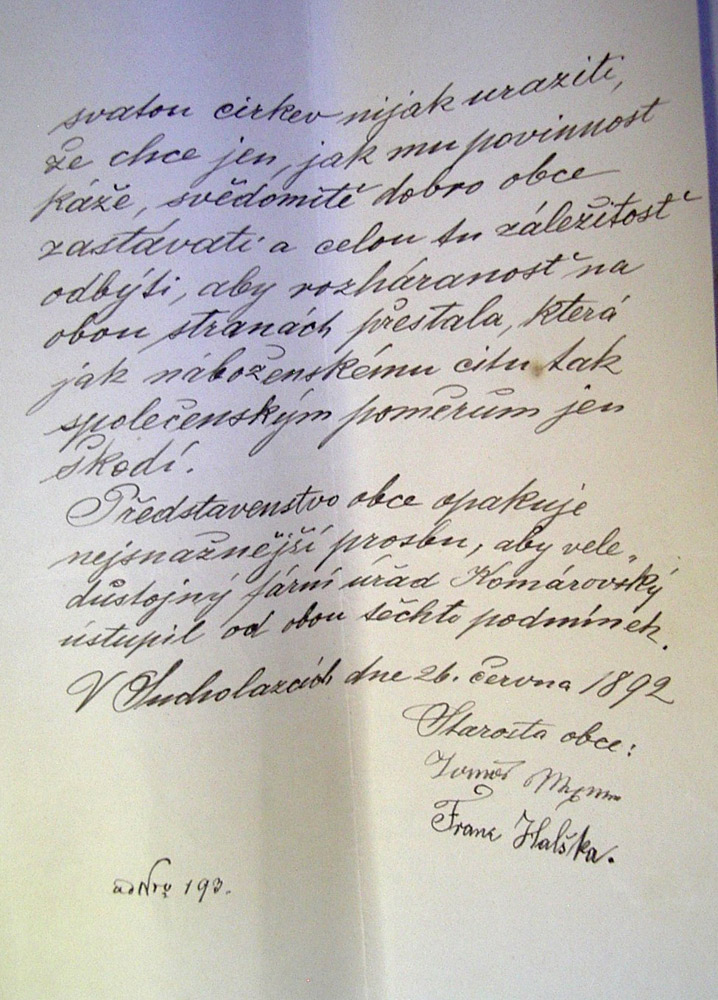 svatou církev nijak uraziti,
že chce jen, jak mu povinnost
káže, svědomitě dobro obce
zastávati a celou tu záležitosť
odbýti, aby rozháranosť na
obou stranách přestala, která
jak náboženskému citu tak
společenským poměrům jen
škodí.
Představenstvo obce opakuje
nejsnažnější prosbu, aby vele„
důstojný fární úřad Komárovský
ustupil od obou těchto podmínek.
V Sucholazcích dne 26. června 1892
Starosta obce:
Tomáš
Franc Halška.
ad Nro 193.